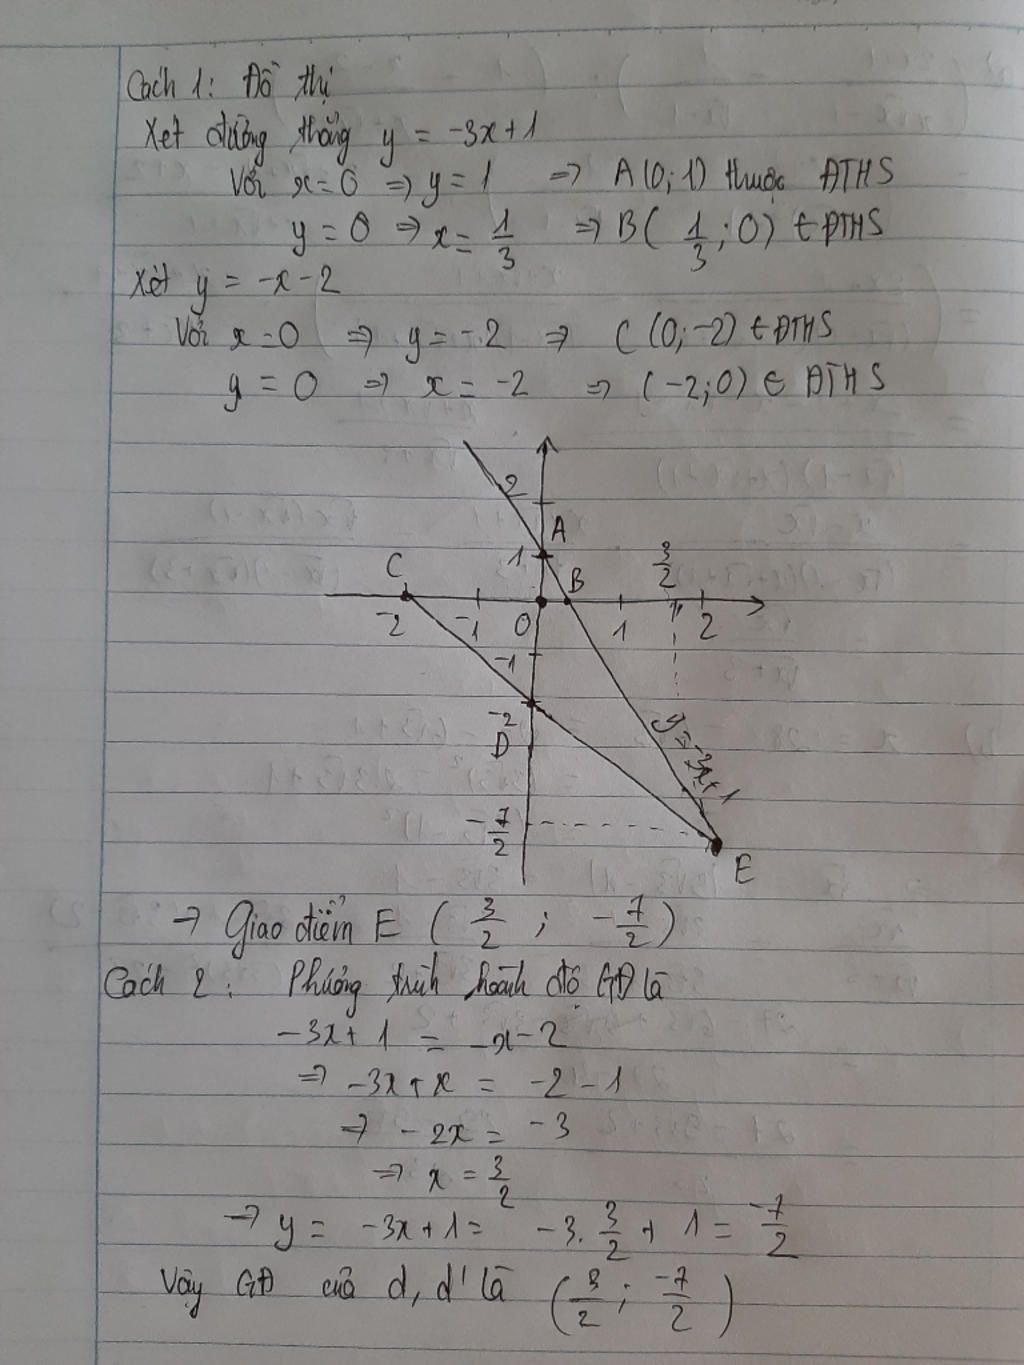 Cách 1: Đồ thị
Xét đường thẳng y = -3x+1
Với x=0 => y=1 => A(0;1) thuộc ĐTHS
y=0 => x= 1/3 => B( 1/3 ;0) ∈ ĐTHS
Xét y = -x-2
Với x=0 => y=-2 => C(0;-2) ∈ ĐTHS
y=0 => x=-2 => (-2;0) ∈ ĐTHS
2
A
1
C
B
3/2
-2
-1
0
1
2
-1
-2
D
y=-3x+1
-7/2
E
→ Giao điểm E ( 3/2 ; -7/2 )
Cách 2: Phương trình hoành độ GĐ là
-3x+1 = -x-2
=> -3x+x = -2-1
=> -2x = -3
=> x = 3/2
→ y = -3x+1 = -3. 3/2 + 1 = -7/2
Vậy GĐ của d, d' là ( 3/2 ; -7/2 )